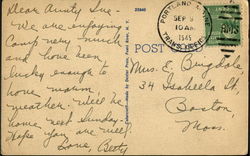 Dear Aunty Sue -
We are enjoying
Camp very much
and have been
lucky enough to
have warm
weather. We'll be
home next Sunday.
Hope you are well!
Love, Betty
POST
PORTLAND, MAINE
SEP 9
10 AM
1945
Mrs. E. Bugdale
34 Isabella St.
Boston,
Mass.